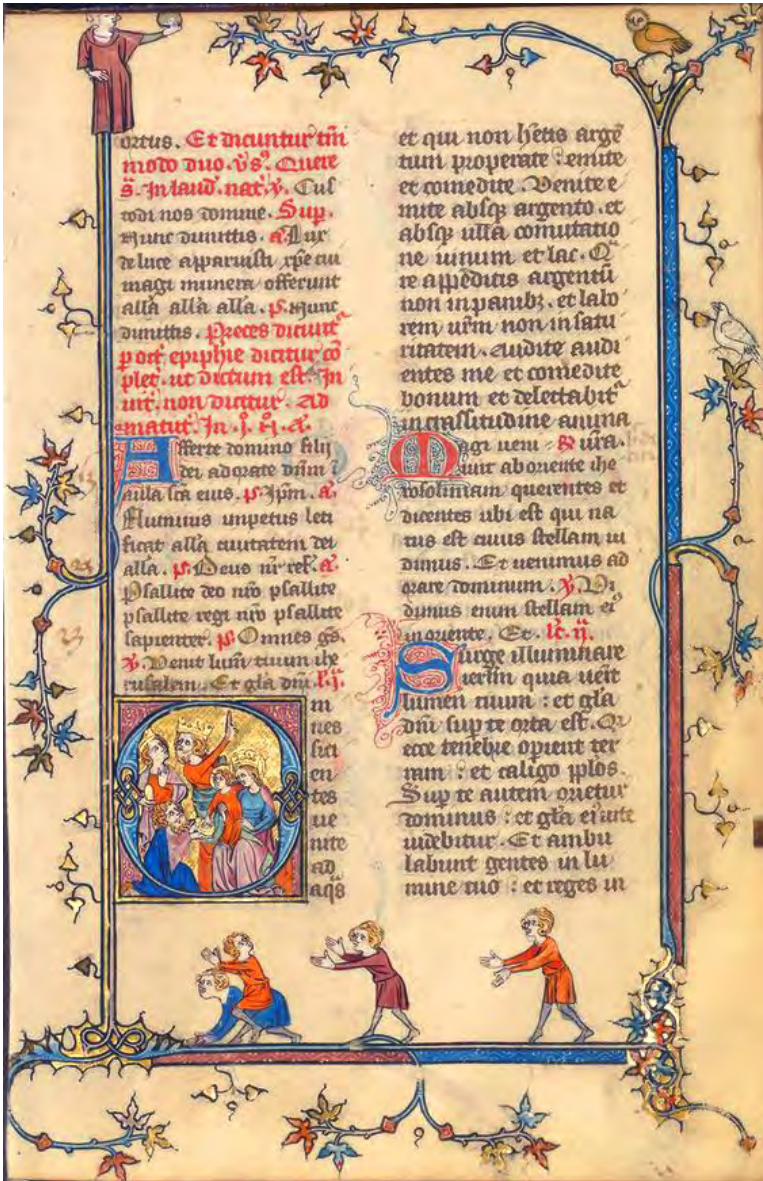 ortus. Et dicuntur tm̄
modo duo. v̄s. Quere
s̄. In laud. nat. v. Cus
todi nos domine. Sup.
Nunc dimittis. a. Lux
de luce apparuisti xp̄e cui
magi munera offerunt
alla alla alla. ps. Nunc
dimittis. Preces dicunt᷑
p oct̄ epiphie dicitur cō
plet. ut dictum est. In
uit. non dicitur. Ad
matut. In. j. n. a.
Afferte domino filij
dei adorate dn̄m ī
aula sc̄a eius. ps. Ip̄m. a.
Fluminis impetus leti
ficat alla ciuitatem dei
alla. ps. Deus nr̄ ref. a.
Psallite deo nr̄o psallite
psallite regi nr̄o psallite
sapienter. ps. Omnes gs̄.
v. Venit lum̄ tuum ihe
rusalem. Et gl̄a dn̄i. l. j.
Om
nes
sici
en
tes
ue
nite
ad
aq̄s
et qui non hētis argē
tum properate : emite
et comedite. Venite e
mite absq; argento. et
absq; ulla comutatio
ne uinum et lac. Q
re appēditis argentū
non in panib;. et labo
rem ur̄m non in satu
ritatem. Audite audi
entes me et comedite
bonum et delectabit᷑
in crassitudine anima
Magi ueni ur̄a.
unt ab oriente ihe
rosolimam querentes et
dicentes ubi est qui na
tus est cuius stellam ui
dimus. Et uenimus ad
orare dominum. v. Vi
dimus enim stellam ei᷒
in oriente. Et. lc̄. ij.
Surge illuminare
ierl̄m quia uēit
lumen tuum : et gl̄a
dn̄i sup te orta est. Q
ecce tenebre operient ter
ram : et caligo pp̄los.
Sup te autem orietur
dominus : et gl̄a ei᷒ in te
uidebitur. Et ambu
labunt gentes in lu
mine tuo : et reges in